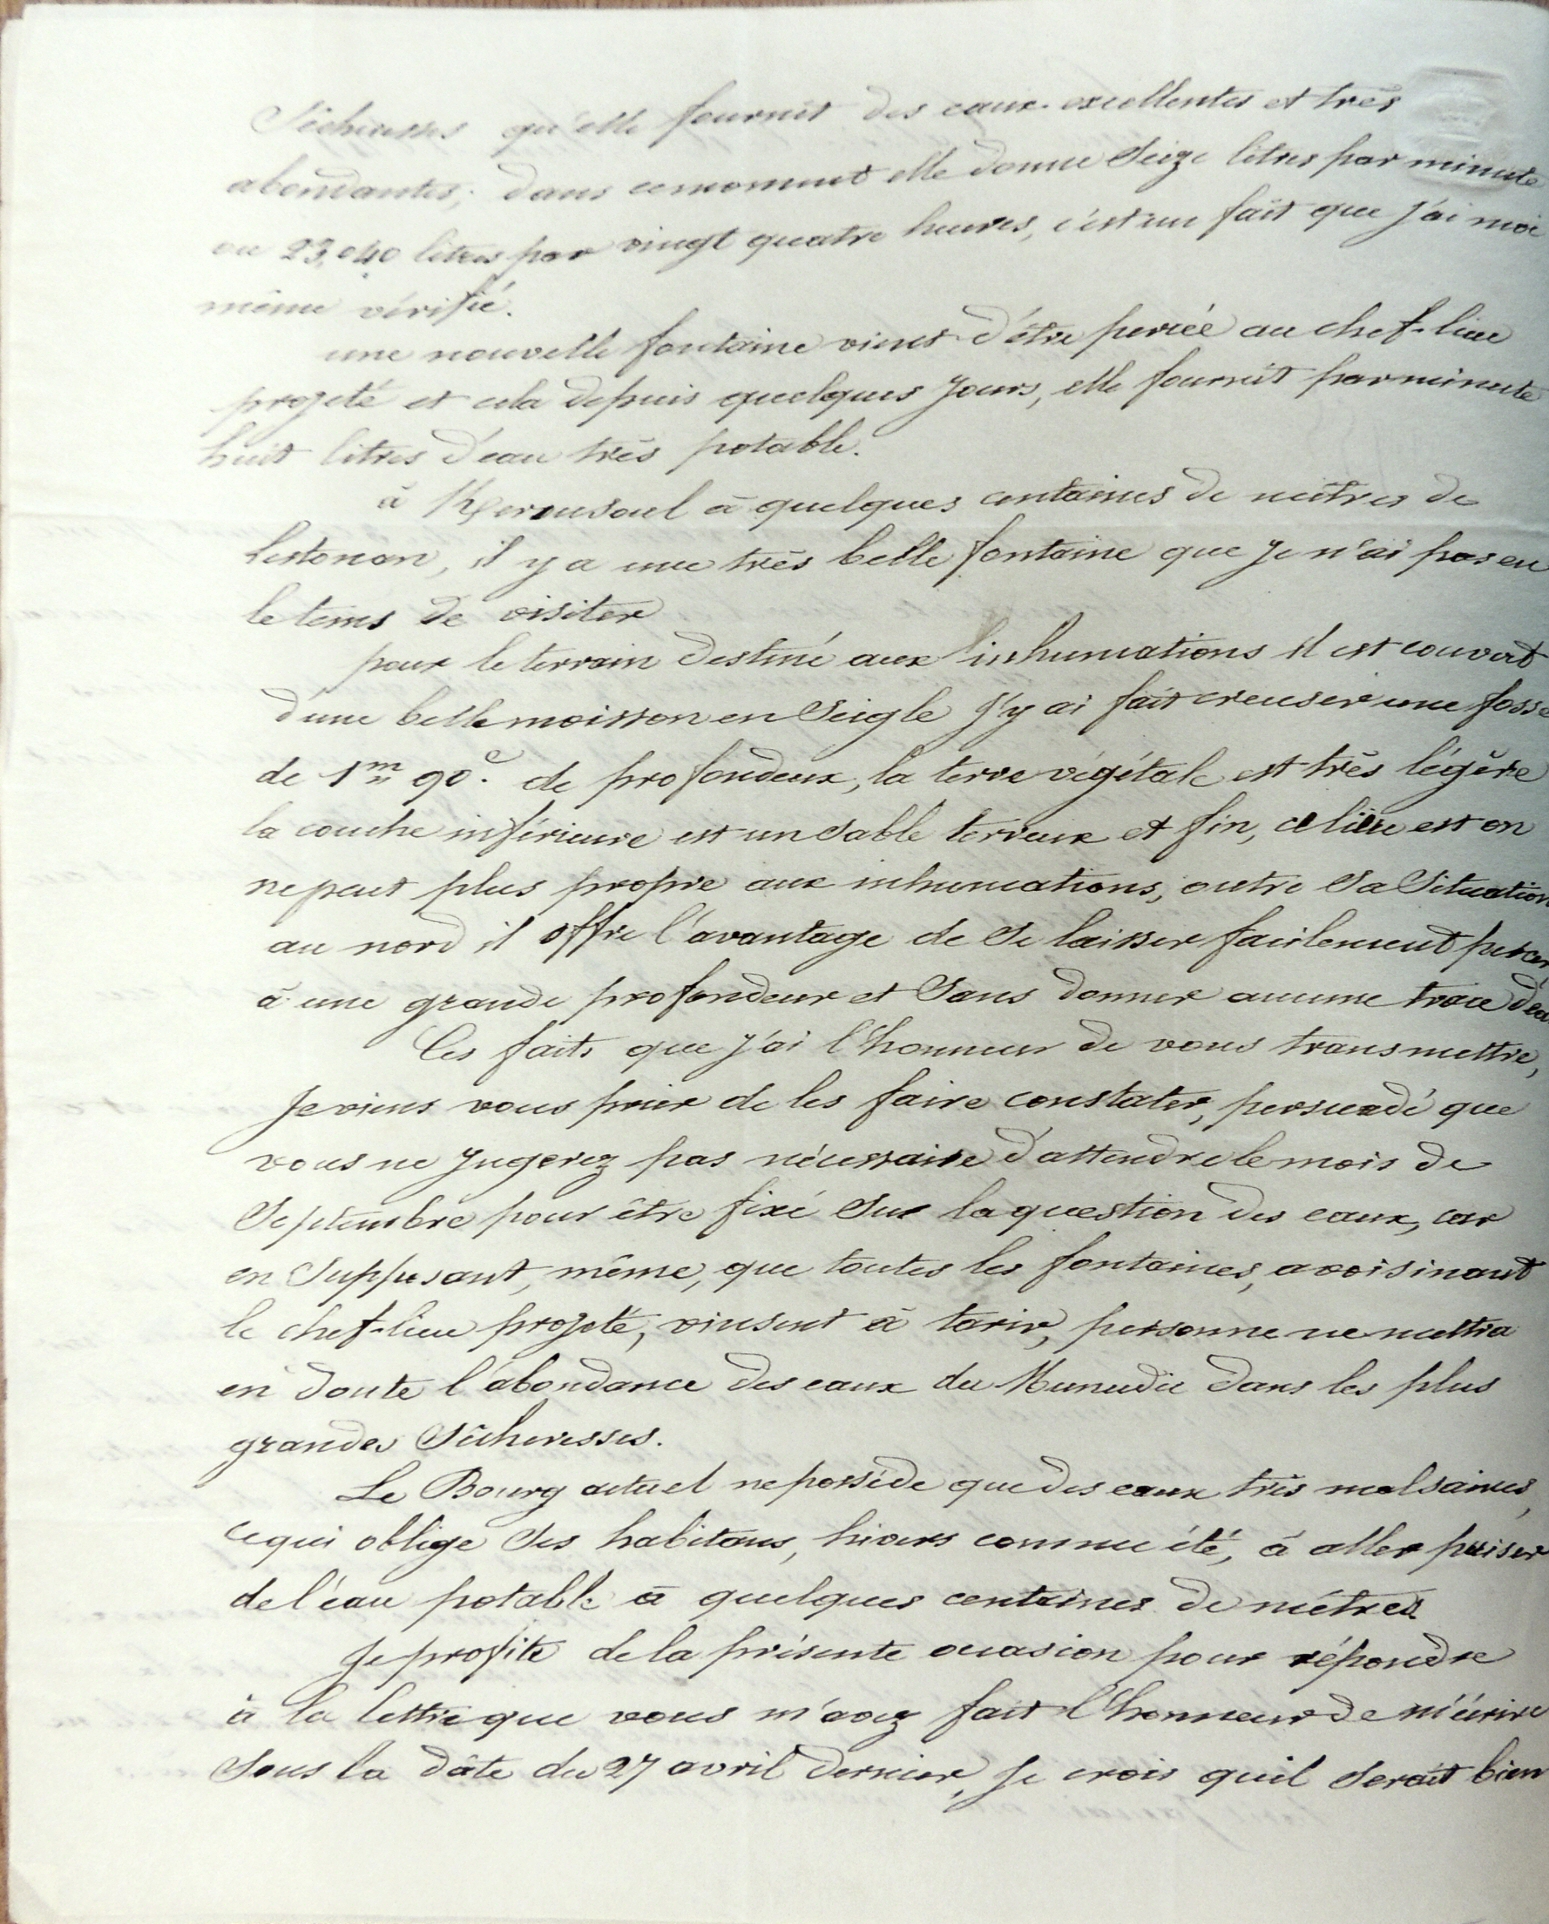 Sécheresses qu'elle fournit des eaux excellentes et très
abondantes; dans cemoment elle donne Seize litres par minute
ou 23,040 litres par vingt quatre heures, c'est un fait que j'ai moi
même vérifié.
une nouvelle fontaine vient d'être percée au chef-lieu
projeté et cela depuis quelques jours, elle fournit par minute
huit litres d'eau très potable.
à Kerourouel à quelques centaines de mètres de
Lestonan, il y a une très belle fontaine que je n'ai pas eu
le tems de visiter
pour le terrain destiné aux inhumations il est couvert
d'une belle moisson en Seigle j'y ai fait creuser une fosse
de 1m 90c. de profondeur, la terre végétale est très légère
la couche inférieure est un Sable terreux et fin, ce lieu est on
ne peut plus propre aux inhumations, outre Sa Situation
au nord il offre l'avantage de Se laisser facilement percer
à une grande profondeur et Sans donner aucune trace d'eau
Ces faits que j'ai l'honneur de vous transmettre,
je viens vous prier de les faire constater, persuadé que
vous ne jugerez pas nécessaire d'attendre le mois de
Septembre pour être fixé Sur la question des eaux, car
en Supposant, même, que toutes les fontaines, avoisinant
le chef-lieu projeté, vinsent à tarir, personne ne mettra
en doute l'abondance des eaux du Muneudic dans les plus
grandes Sécheresses.
Le Bourg actuel ne possède que des eaux très malsaines,
ce qui oblige Ses habitans, hivers comme été, à aller puiser
de l'éau potable à quelques centaines de mètres
Je profite de la présente occasion pour répondre
à la lettre que vous m'avez fait l'honneur de m'écrire
Sous la dâte du 27 avril dernier, Je crois quil Serait bien